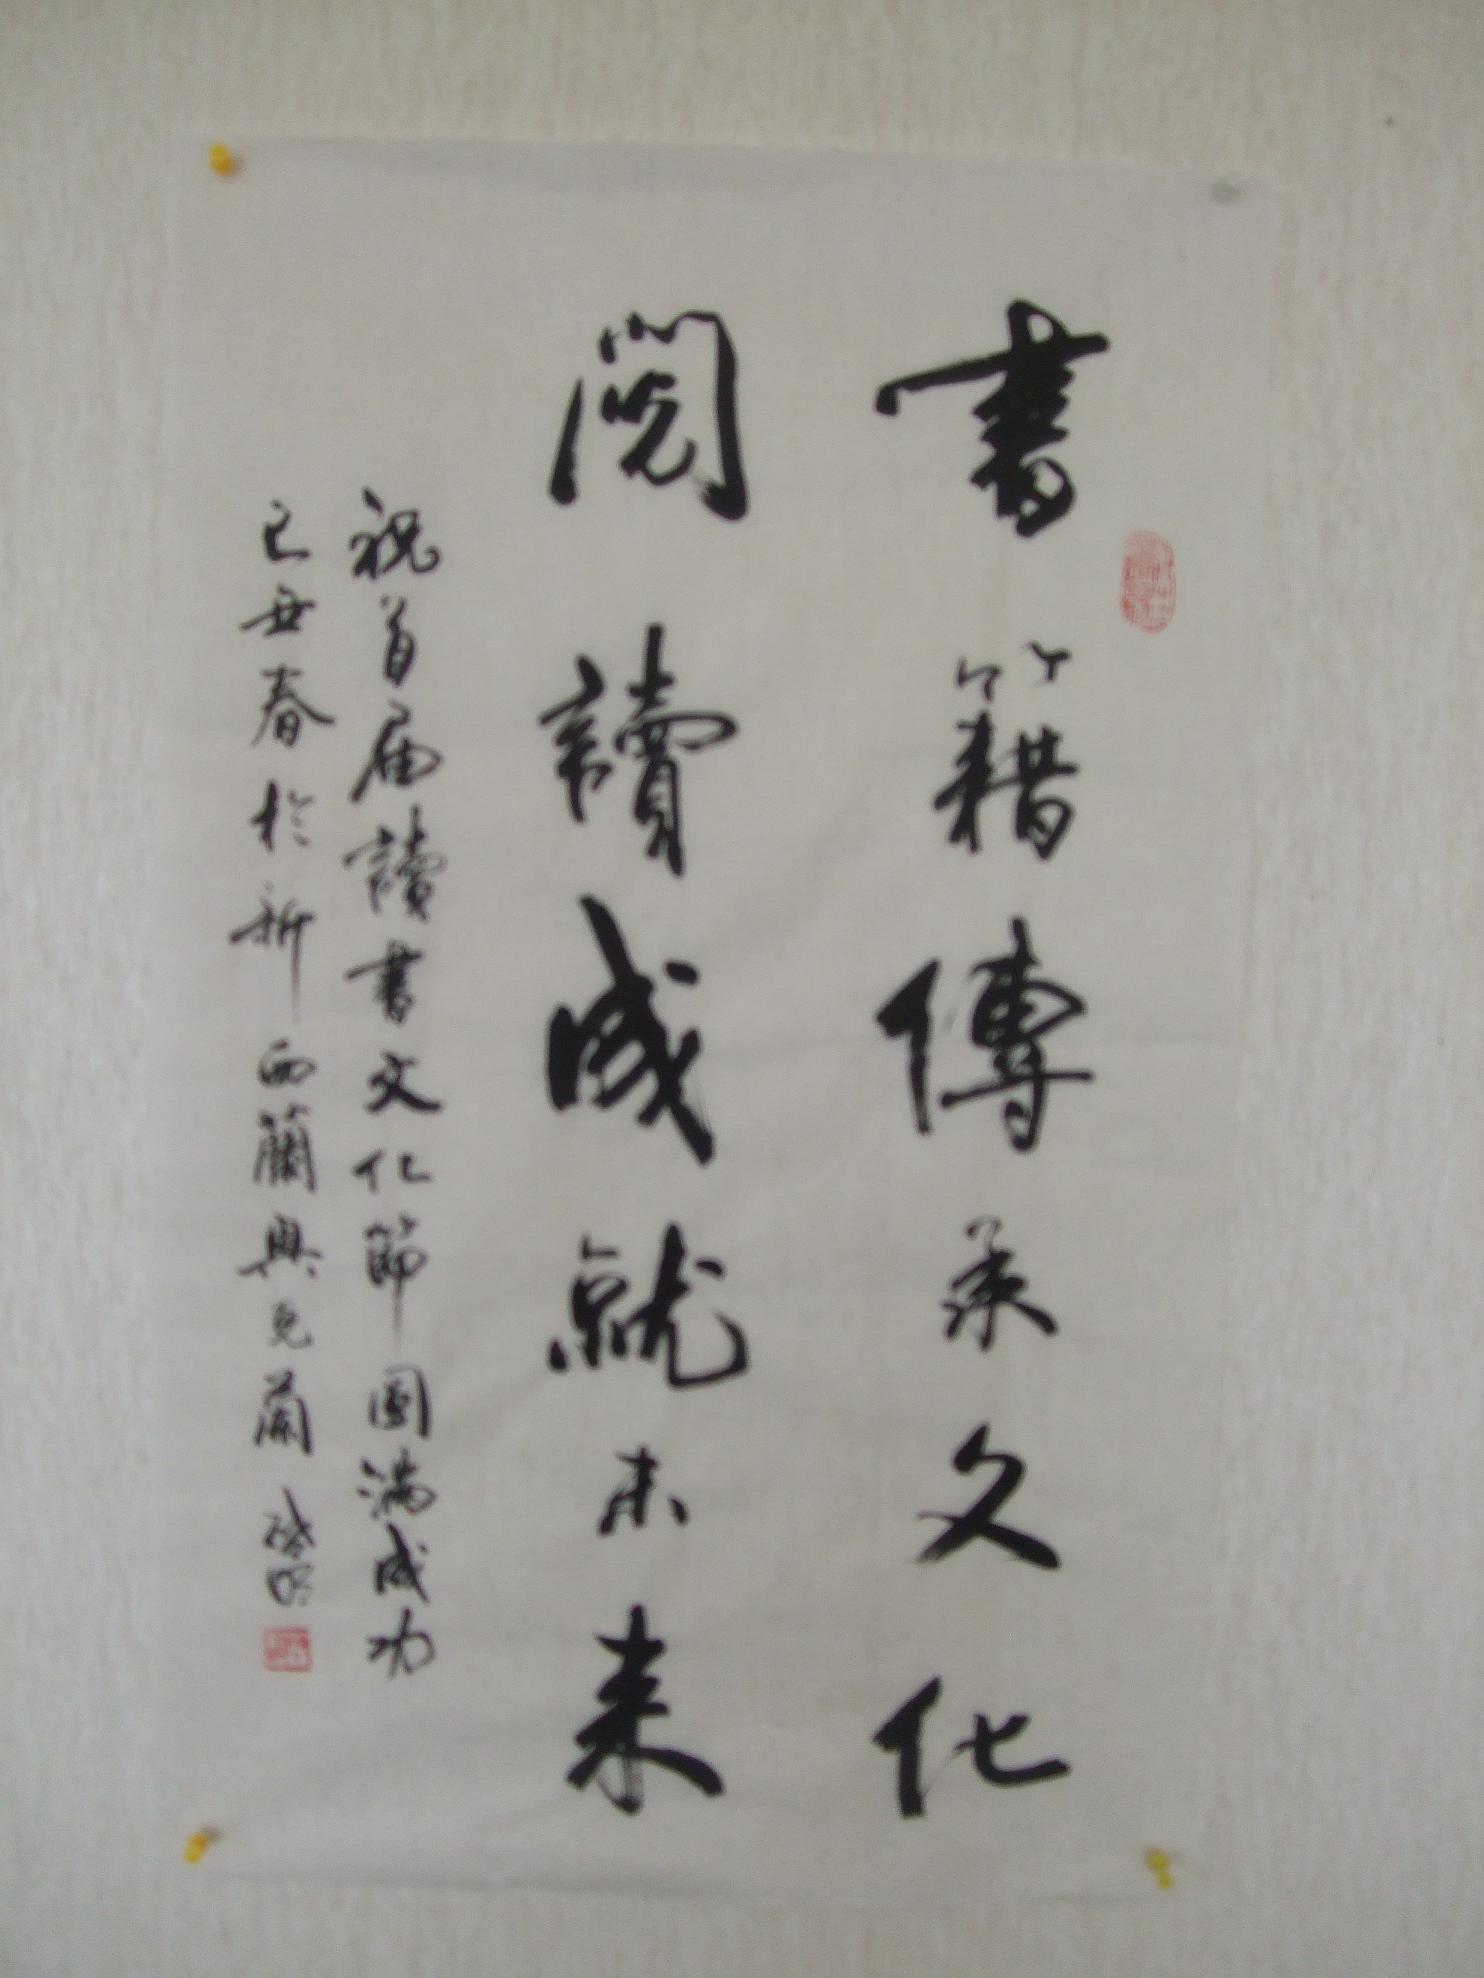 書籍傳承文化
閱讀成就未来
祝首届讀書文化節圓滿成功
己丑春於新西蘭奥克蘭 啓明